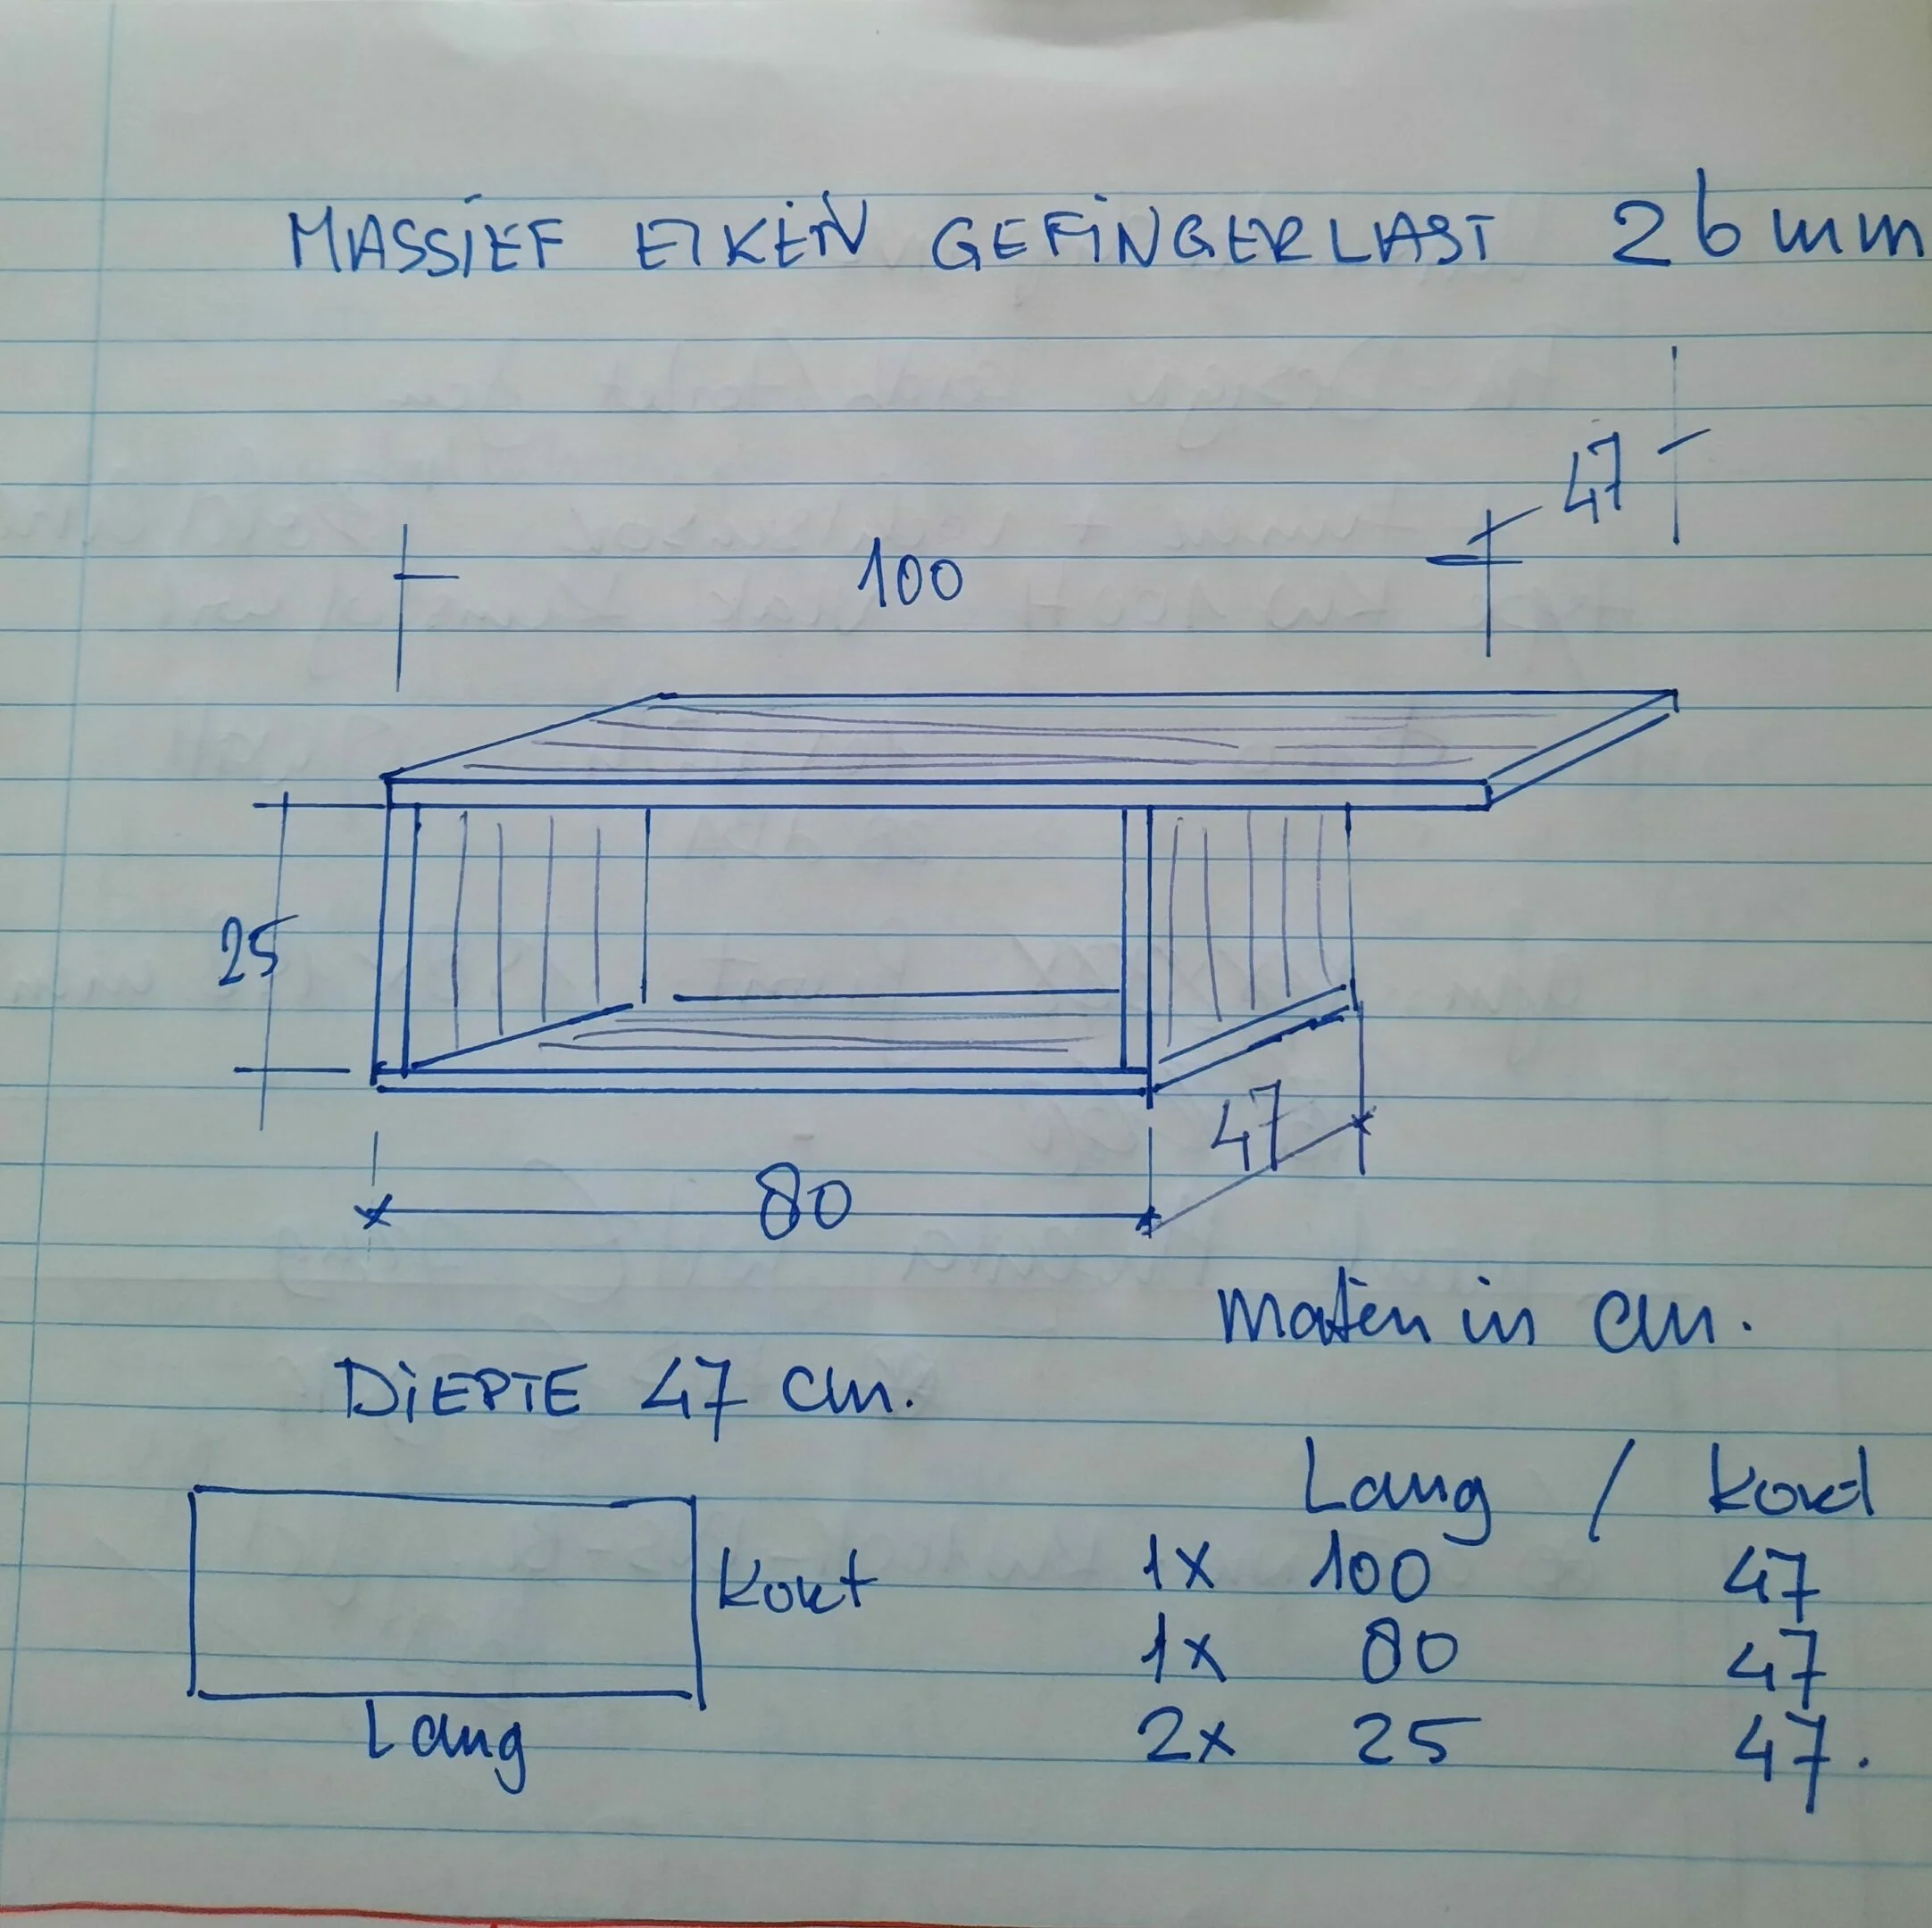 MASSIEF EIKEN GEFINGERLAST 26mm
47
100
25
47
80
Maten in cm.
DIEPTE 47 cm.
Lang / Kord
Kort
1x 100 47
1x 80 47
2x 25 47.
Lang